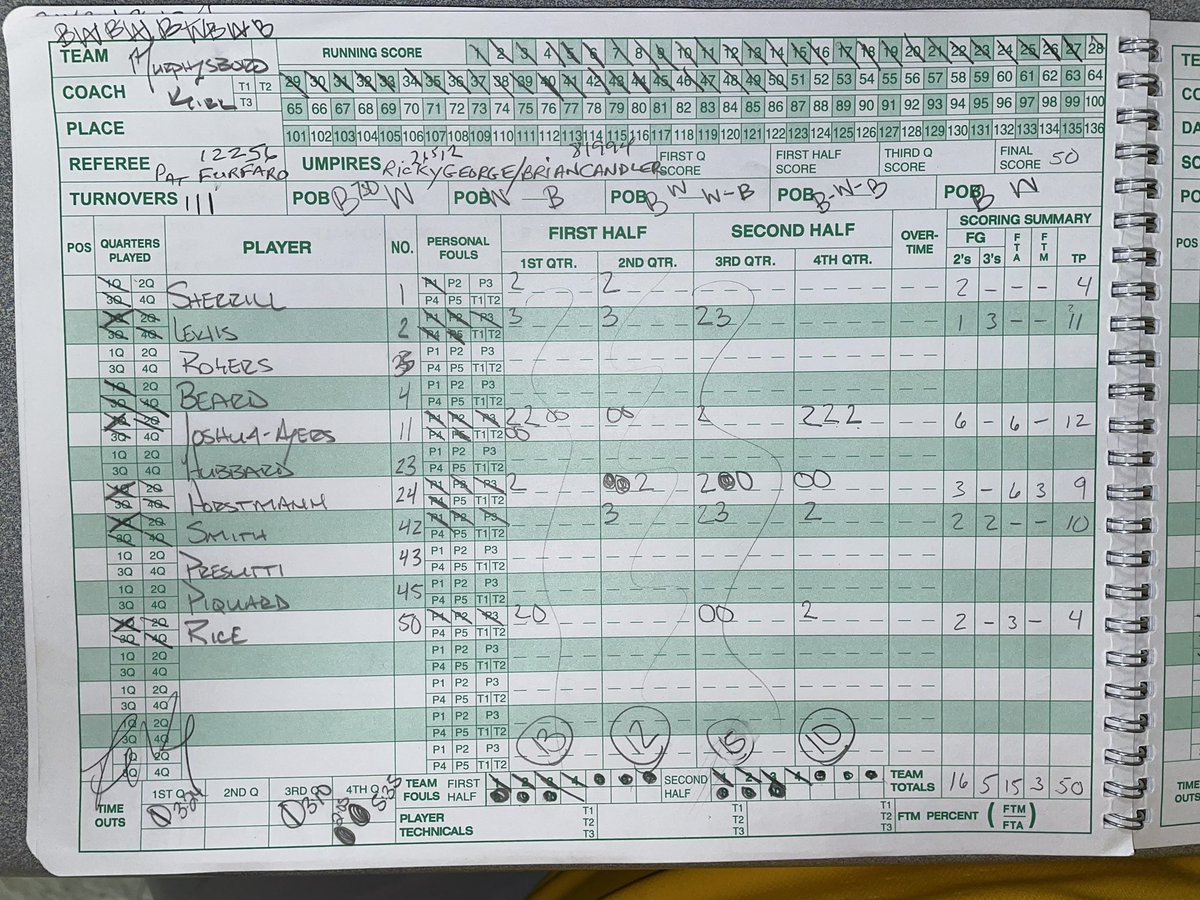 BWBWBWBWB
TEAM Murphysboro RUNNING SCORE 1 2 3 4 5 6 7 8 9 10 11 12 13 14 15 16 17 18 19 20 21 22 23 24 25 26 27 28
COACH T1 T2 T3 29 30 31 32 33 34 35 36 37 38 39 40 41 42 43 44 45 46 47 48 49 50 51 52 53 54 55 56 57 58 59 60 61 62 63 64
65 66 67 68 69 70 71 72 73 74 75 76 77 78 79 80 81 82 83 84 85 86 87 88 89 90 91 92 93 94 95 96 97 98 99 100
PLACE 101 102 103 104 105 106 107 108 109 110 111 112 113 114 115 116 117 118 119 120 121 122 123 124 125 126 127 128 129 130 131 132 133 134 135 136
12256 21512 81994
REFEREE PAT FURFARO UMPIRES RICKY GEORGE/BRIAN CANDLER FIRST Q SCORE FIRST HALF SCORE THIRD Q SCORE FINAL SCORE 50
TURNOVERS 111 POB B W POB W - B POB B W W-B POB B-W-B POB B W
POS QUARTERS PLAYED PLAYER NO. PERSONAL FOULS FIRST HALF SECOND HALF OVER-TIME SCORING SUMMARY
1ST QTR. 2ND QTR. 3RD QTR. 4TH QTR. FG 2's 3's FTA FTM TP
1Q 2Q 3Q 4Q SHERRILL 1 P1 P2 P3 P4 P5 T1 T2 2 2 2 - - - 4
1Q 2Q 3Q 4Q LEWIS 2 P1 P2 P3 P4 P5 T1 T2 3 3 23 1 3 - - 11
1Q 2Q 3Q 4Q ROGERS P1 P2 P3 P4 P5 T1 T2
1Q 2Q 3Q 4Q BEARD 4 P1 P2 P3 P4 P5 T1 T2
1Q 2Q 3Q 4Q JOSHUA-AYERS 11 P1 P2 P3 P4 P5 T1 T2 22 00 00 00 2 222 6 - 6 - 12
1Q 2Q 3Q 4Q HUBBARD 23 P1 P2 P3 P4 P5 T1 T2
1Q 2Q 3Q 4Q HORSTMANN 24 P1 P2 P3 P4 P5 T1 T2 2 00 2 2 00 00 3 - 6 3 9
1Q 2Q 3Q 4Q SMITH 42 P1 P2 P3 P4 P5 T1 T2 3 23 2 2 2 - - 10
1Q 2Q 3Q 4Q PRESUTTI 43 P1 P2 P3 P4 P5 T1 T2
1Q 2Q 3Q 4Q PIQUARD 45 P1 P2 P3 P4 P5 T1 T2
1Q 2Q 3Q 4Q RICE 50 P1 P2 P3 P4 P5 T1 T2 20 00 2 2 - 3 - 4
1Q 2Q 3Q 4Q P1 P2 P3 P4 P5 T1 T2
1Q 2Q 3Q 4Q P1 P2 P3 P4 P5 T1 T2
1Q 2Q 3Q 4Q P1 P2 P3 P4 P5 T1 T2
1Q 2Q 3Q 4Q P1 P2 P3 P4 P5 T1 T2 13 12 15 10
TIME OUTS 1ST Q 2ND Q 3RD Q 4TH Q 5:35 TEAM FOULS FIRST HALF 1 2 3 4 SECOND HALF 1 2 3 4 TEAM TOTALS 16 5 15 3 50
PLAYER TECHNICALS T1 T2 T3 T1 T2 T3 T1 T2 T3 FTM PERCENT (FTM/FTA)